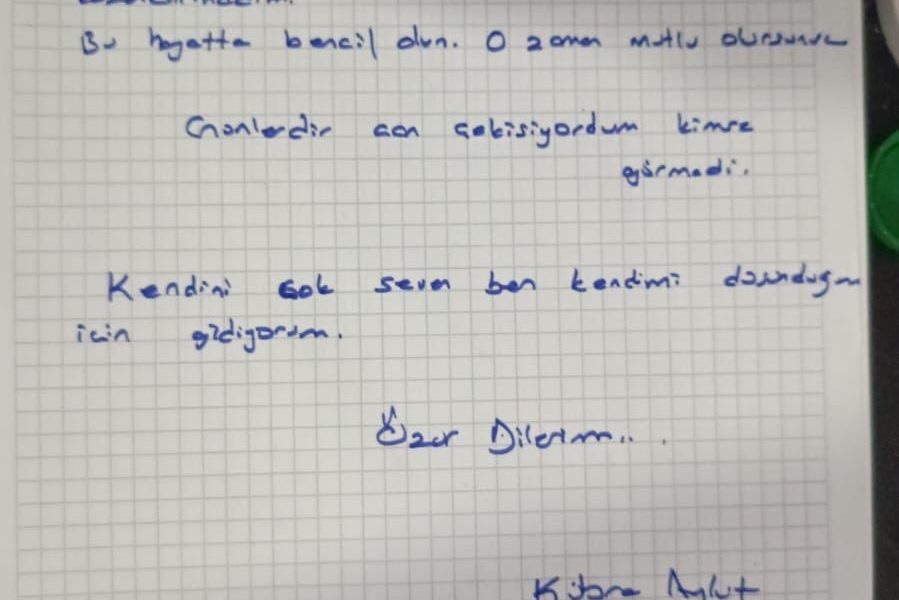 Bu hayatta bencil olun. O zaman mutlu olursunuz
Günlerdir can çekişiyordum kimse
görmedi.
Kendini çok seven ben kendimi düşündüğüm
için gidiyorum.
Özür Dilerim...
Kübra Aykut